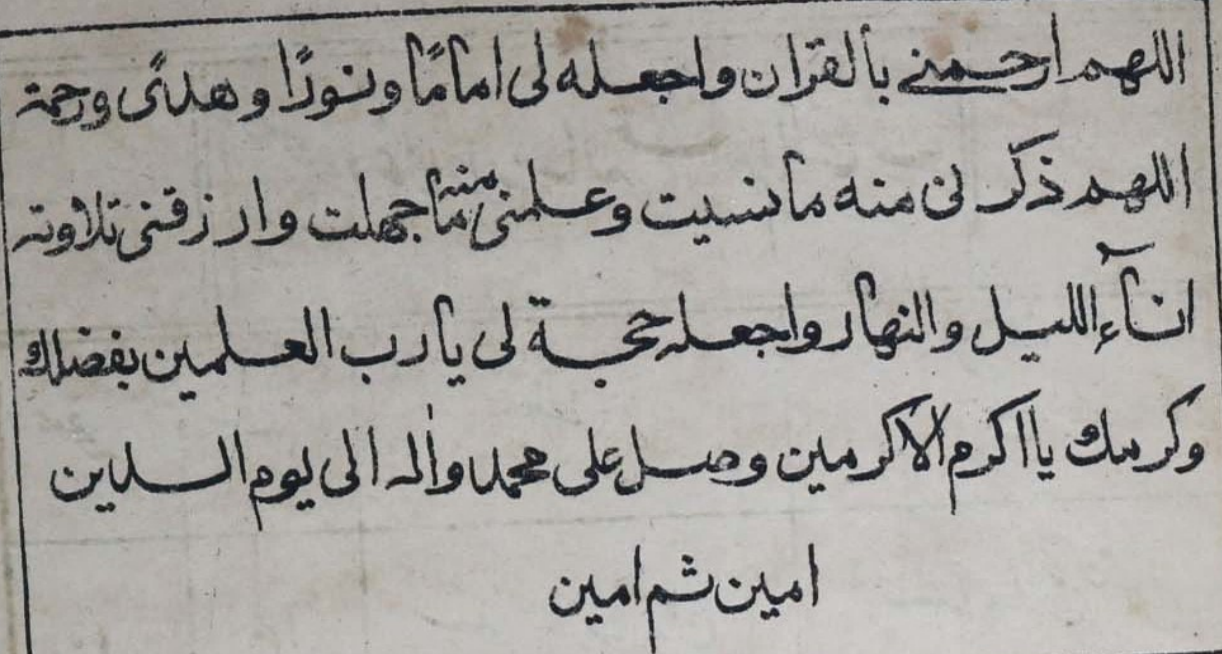 اللهم ارحمنے بالقران واجعله لى امامًا ونورًا وهدًى ورحمة
اللهم ذكر نى منه مانسيت وعلمنى منه ماجهلت وارزقنى تلاوته
انآء الليل والنهار واجعله حجة لى يا رب العلمين بفضلك
وكرمك يا اكرم الاكرمين وصل على محمد واٰله الى يوم الدين
امين ثم امين